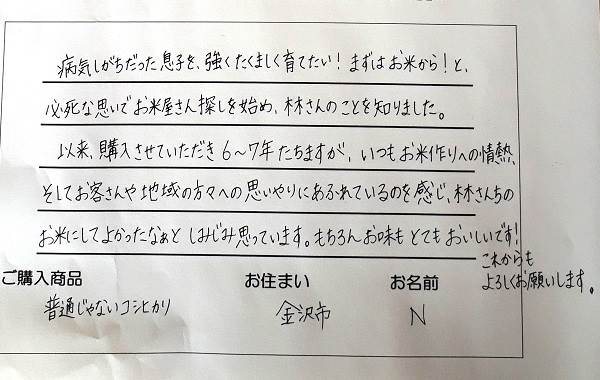 病気しがちだった息子を、強くたくましく育てたい！まずはお米から！と、
必死な思いでお米屋さん探しを始め、林さんのことを知りました。
以来、購入させていただき6～7年たちますが、いつもお米作りへの情熱、
そしてお客さんや地域の方々への思いやりにあふれているのを感じ、林さんちの
お米にしてよかったなぁと しみじみ思っています。もちろんお味も とてもおいしいです！
これからも
よろしくお願いします。
ご購入商品 お住まい お名前
普通じゃないコシヒカリ 金沢市 N